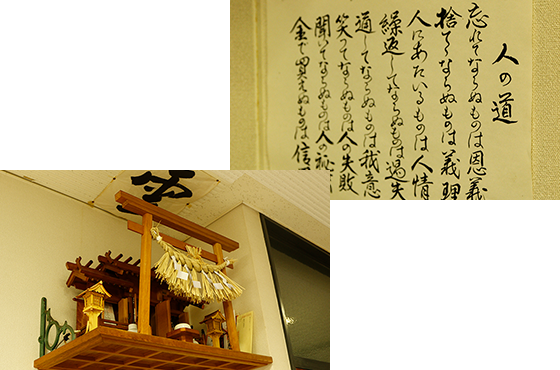 人の道
忘れてならぬものは恩義
捨ててならぬものは義理
人にあたえるものは人情
繰返してならぬものは過失
通してならぬものは我意
笑ってならぬものは人の失敗
聞いてならぬものは人の秘
金で買えぬものは信